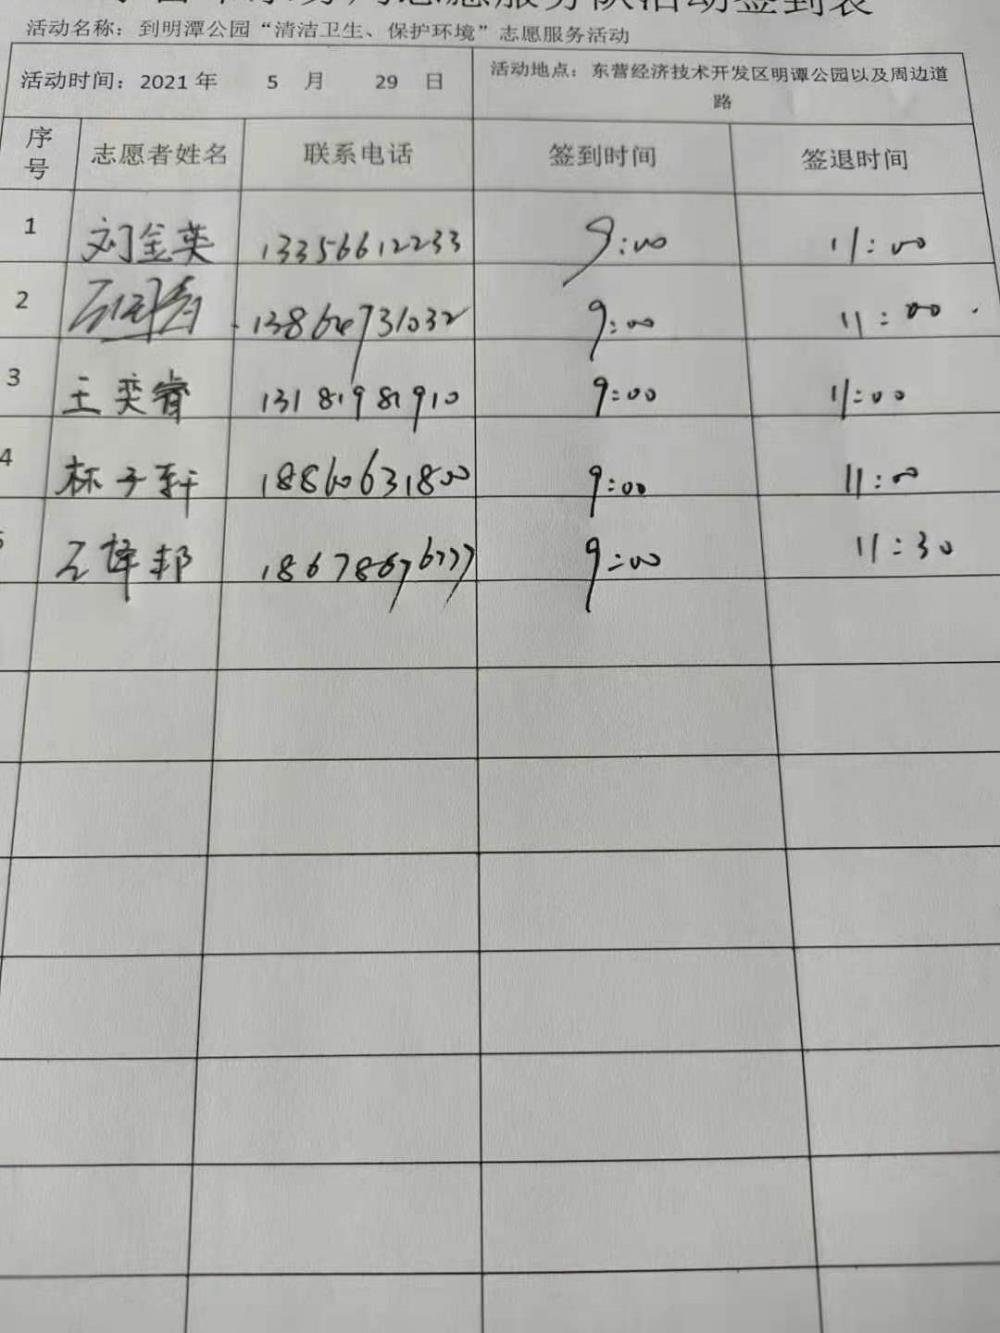 志愿服务队活动签到表
活动名称：到明潭公园“清洁卫生、保护环境”志愿服务活动
活动时间：2021 年 5 月 29 日 活动地点：东营经济技术开发区明谭公园以及周边道
路
序号 志愿者姓名 联系电话 签到时间 签退时间
1 刘金英 13356612233 9:00 11:00
2 13864731032 9:00 11:00
3 王奕睿 13181981910 9:00 11:00
4 林子轩 18860631800 9:00 11:00
5 18678676777 9:00 11:30